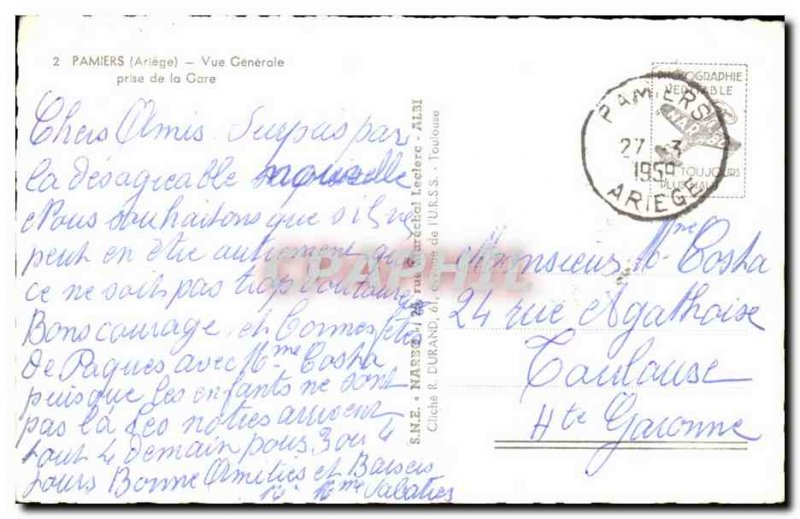 2 PAMIERS (Ariége) — Vue Générale
prise de la Gare
Chers Amis Surpris par
la désagréable nouvelle
Nous souhaitons que s'il ne
peut en être autrement que
ce ne soit pas trop douloureux
Bons courage, et bonnes fêtes
de Paques, avec Mme Costa
puisque les enfants ne sont
pas là les notres arrivent
tout 4 demain pour 3 ou 4
jours Bonne Amities et Baisers
Mr Mme Sabatier
S.N.E. « NAREO » rue Maréchal Leclerc - ALBI
Cliché R. DURAND, 61, de l'U.R.S.S. - Toulouse
CPAPHIL
PHOTOGRAPHIE
VERITABLE
NAREO
TOUJOURS
PLUS HAUT
PAMIERS
27 -3
1959
ARIEGE
Monsieur Mme Costa
24 rue Agathoise
Toulouse
Hte Garonne